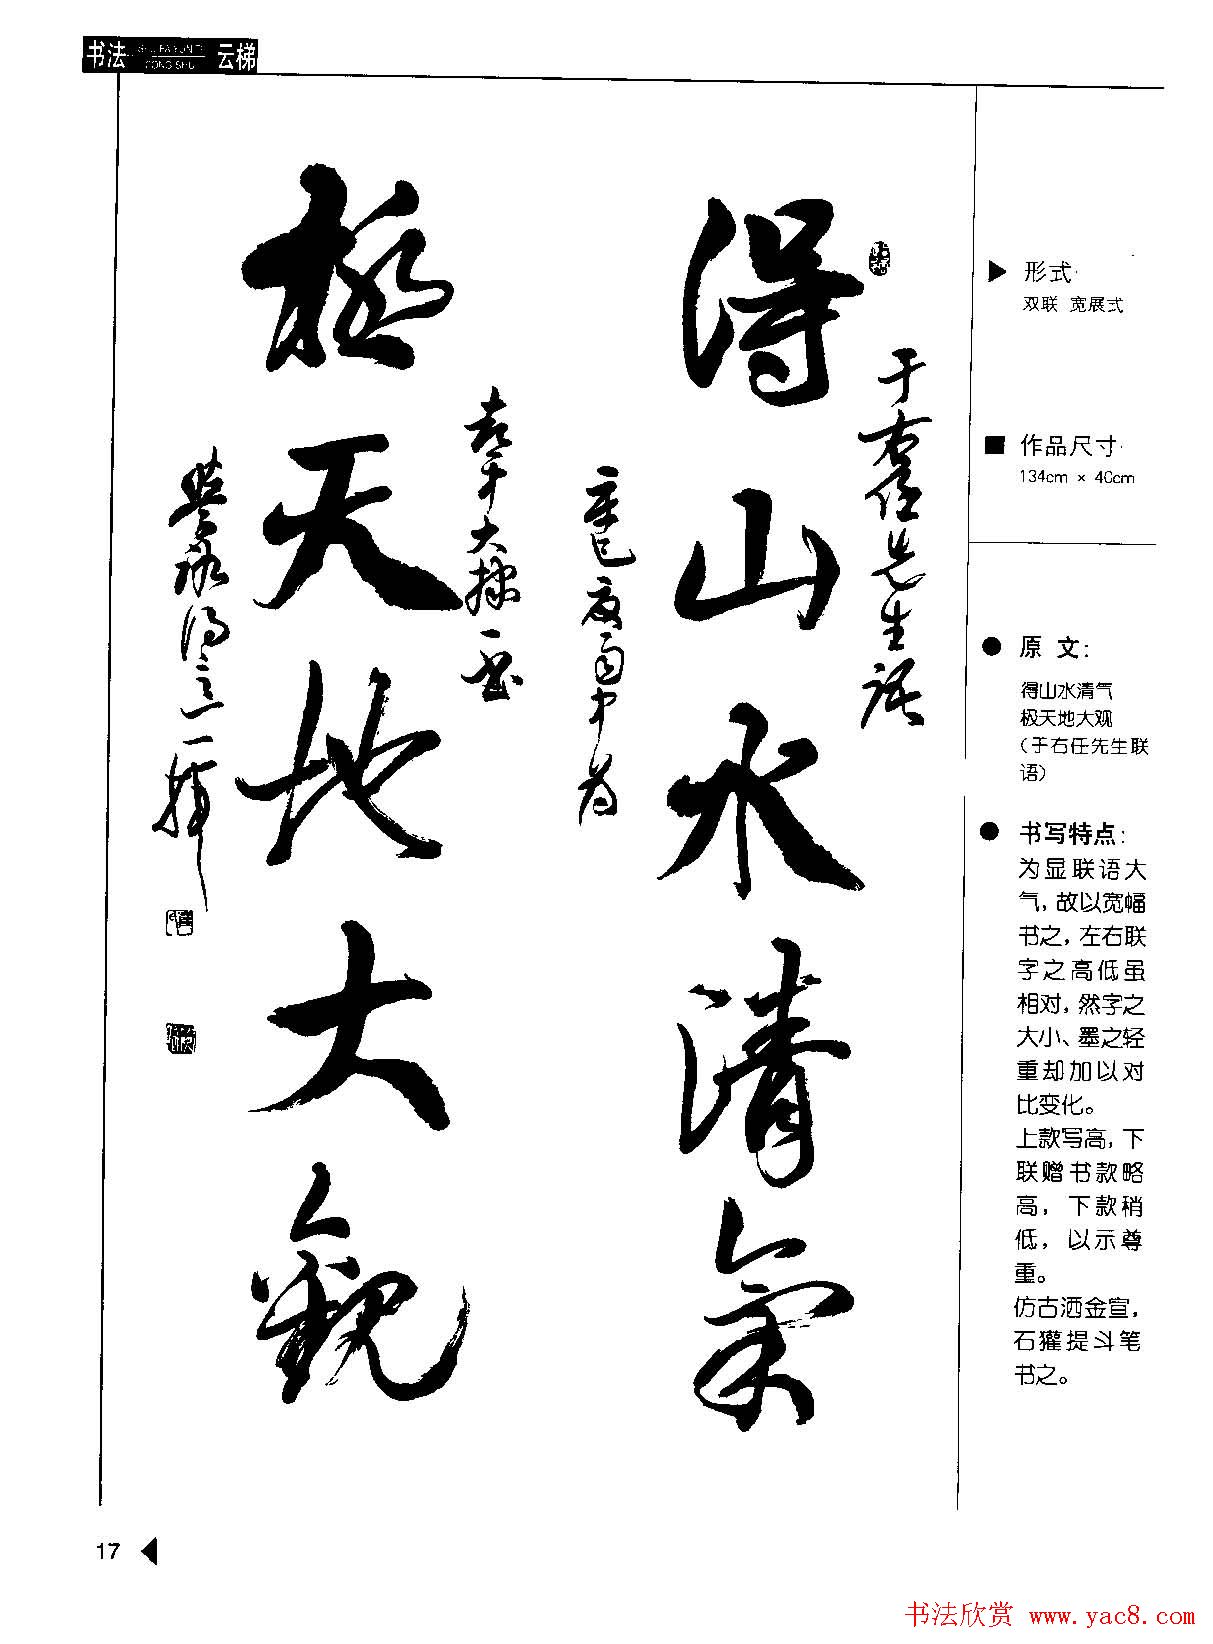 书法 SHU FA YUN TI 云梯
CONG SHU
得山水清氣
于右任先生语
辛巳夏雨中为
極天地大觀
一书
形式
双联 宽展式
作品尺寸
134cm × 40cm
原 文：
得山水清气
极天地大观
（于右任先生联
语）
书写特点：
为显联语大
气，故以宽幅
书之，左右联
字之高低虽
相对，然字之
大小、墨之轻
重却加以对
比变化。
上款写高，下
联赠书款略
高，下款稍
低，以示尊
重。
仿古洒金宣，
石獾提斗笔
书之。
17
书法欣赏 www.yac8.com